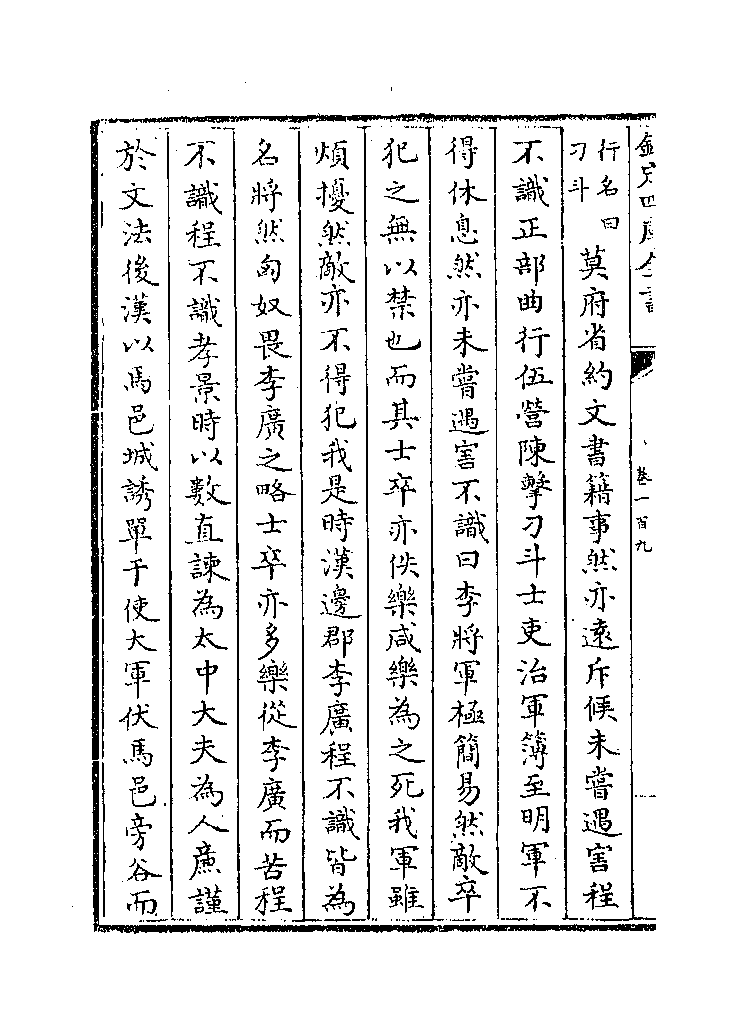 欽定四庫全書
卷一百九
行名曰
刁斗
莫府省約文書籍事然亦遠斥候未嘗遇害程
不識正部曲行伍營陳擊刁斗士吏治軍簿至明軍不
得休息然亦未嘗遇害不識曰李將軍極簡易然敵卒
犯之無以禁也而其士卒亦佚樂咸樂為之死我軍雖
煩擾然敵亦不得犯我是時漢邊郡李廣程不識皆為
名將然匈奴畏李廣之略士卒亦多樂從李廣而苦程
不識程不識孝景時以數直諫為太中大夫為人㢘謹
於文法後漢以馬邑城誘單于使大軍伏馬邑旁谷而